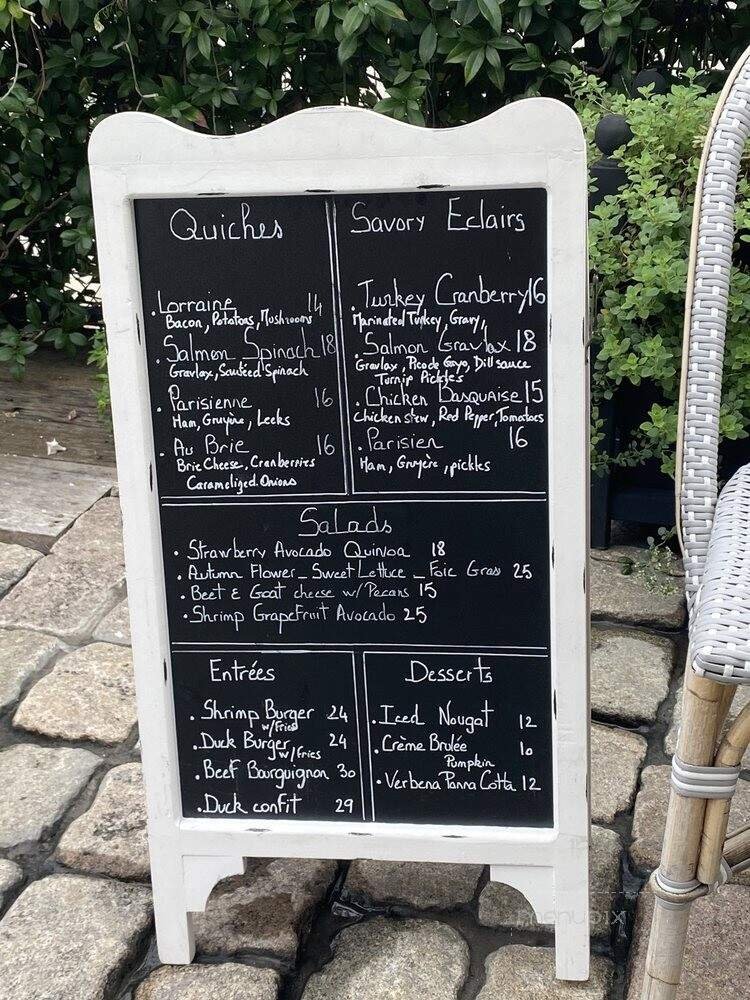 Quiches
. Lorraine 14
Bacon, Potatoes, Mushrooms
. Salmon Spinach 18
Gravlax, Sautéed Spinach
. Parisienne 16
Ham, Gruyère, Leeks
. Au Brie 16
Brie Cheese, Cranberries
Caramelized Onions
Savory Eclairs
. Turkey Cranberry 16
Marinated Turkey, Gravy,
. Salmon Gravlax 18
Gravlax, Pico de Gayo, Dill sauce
Turnip Pickles
. Chicken Basquaise 15
Chicken stew, Red Pepper, Tomatoes
. Parisien 16
Ham, Gruyère, pickles
Salads
. Strawberry Avocado Quinoa 18
. Autumn Flower _ Sweet Lettuce _ Foie Gras 25
. Beet & Goat cheese w/ Pecans 15
. Shrimp GrapeFruit Avocado 25
Entrées
. Shrimp Burger 24
w/fries
. Duck Burger 24
w/fries
. Beef Bourguignon 30
. Duck confit 29
Desserts
. Iced Nougat 12
. Crème Brulée 10
Pumpkin
. Verbena Panna Cotta 12
menupix